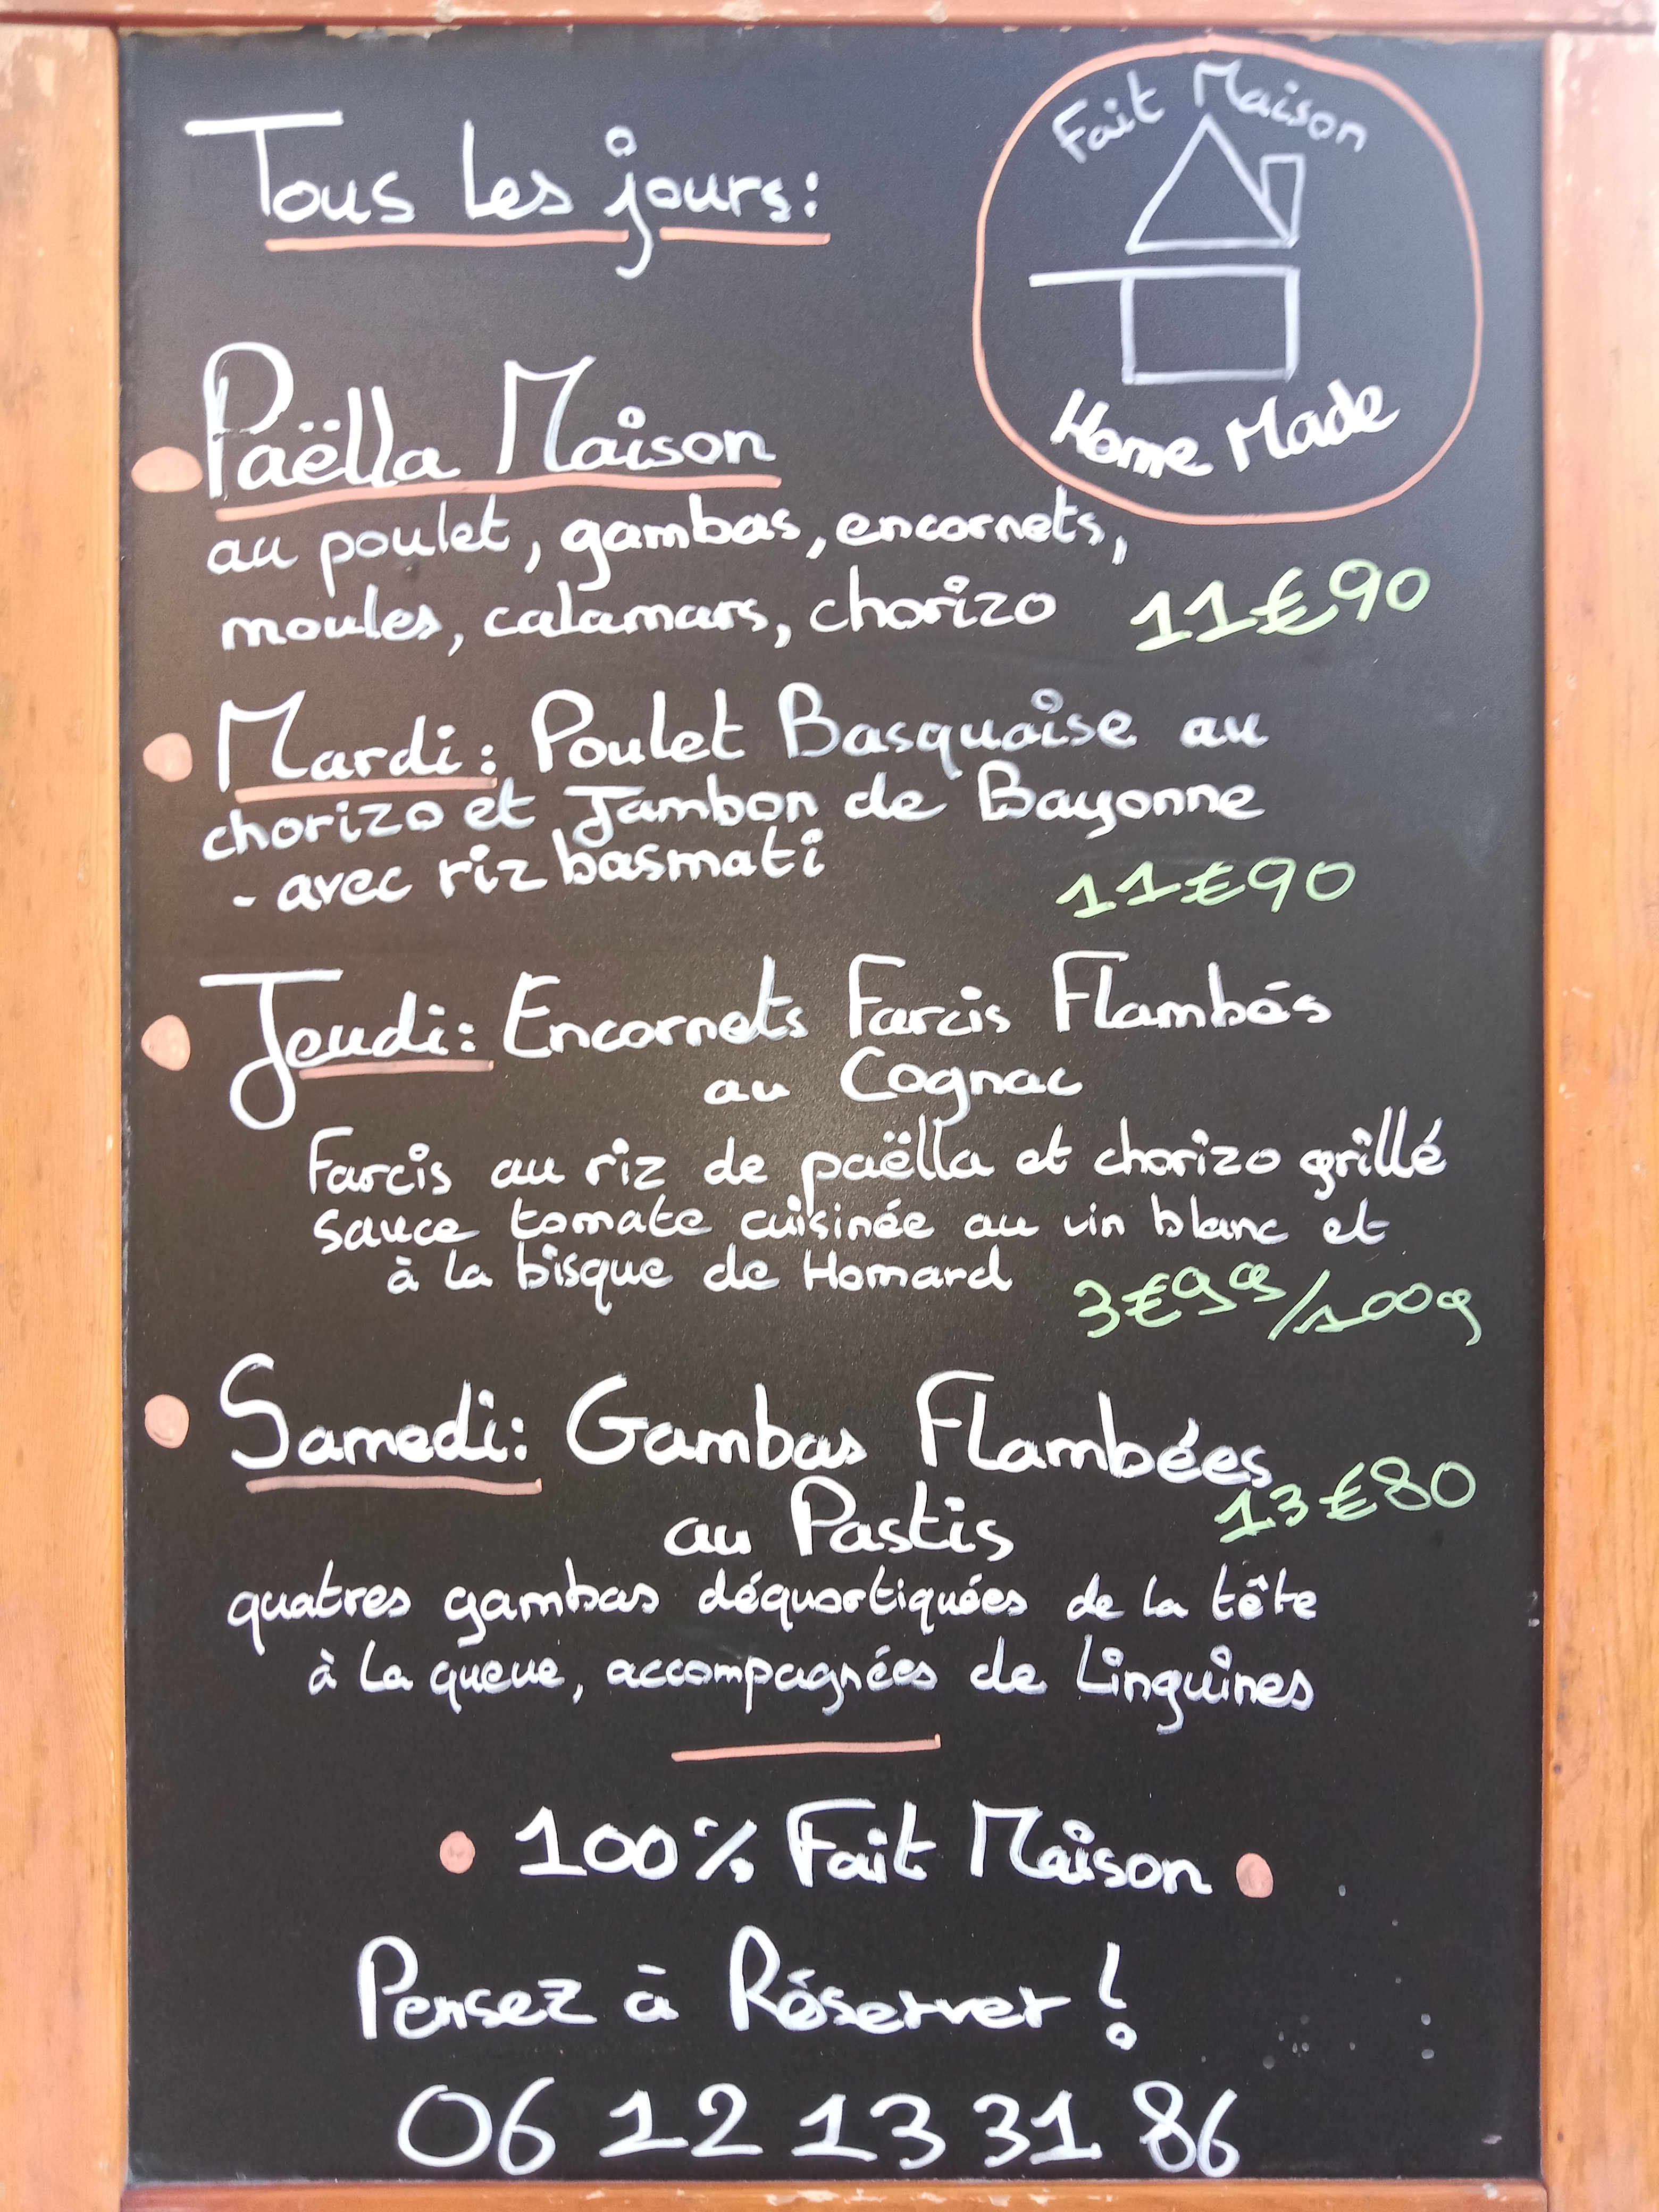 Fait Maison
Tous les jours:
Home Made
Paëlla Maison
au poulet, gambas, encornets,
moules, calamars, chorizo 11€90
Mardi: Poulet Basquaise au
chorizo et Jambon de Bayonne
- avec riz basmati
11€90
Jeudi: Encornets Farcis Flambés
au Cognac
Farcis au riz de paëlla et chorizo grillé
sauce tomate cuisinée au vin blanc et
à la bisque de Homard
3€99/100g
Samedi: Gambas Flambées
13€80
au Pastis
quatres gambas déquortiquées de la tête
à la queue, accompagnées de Linguines
100% Fait Maison
Pensez à Réserver!
06 12 13 31 86